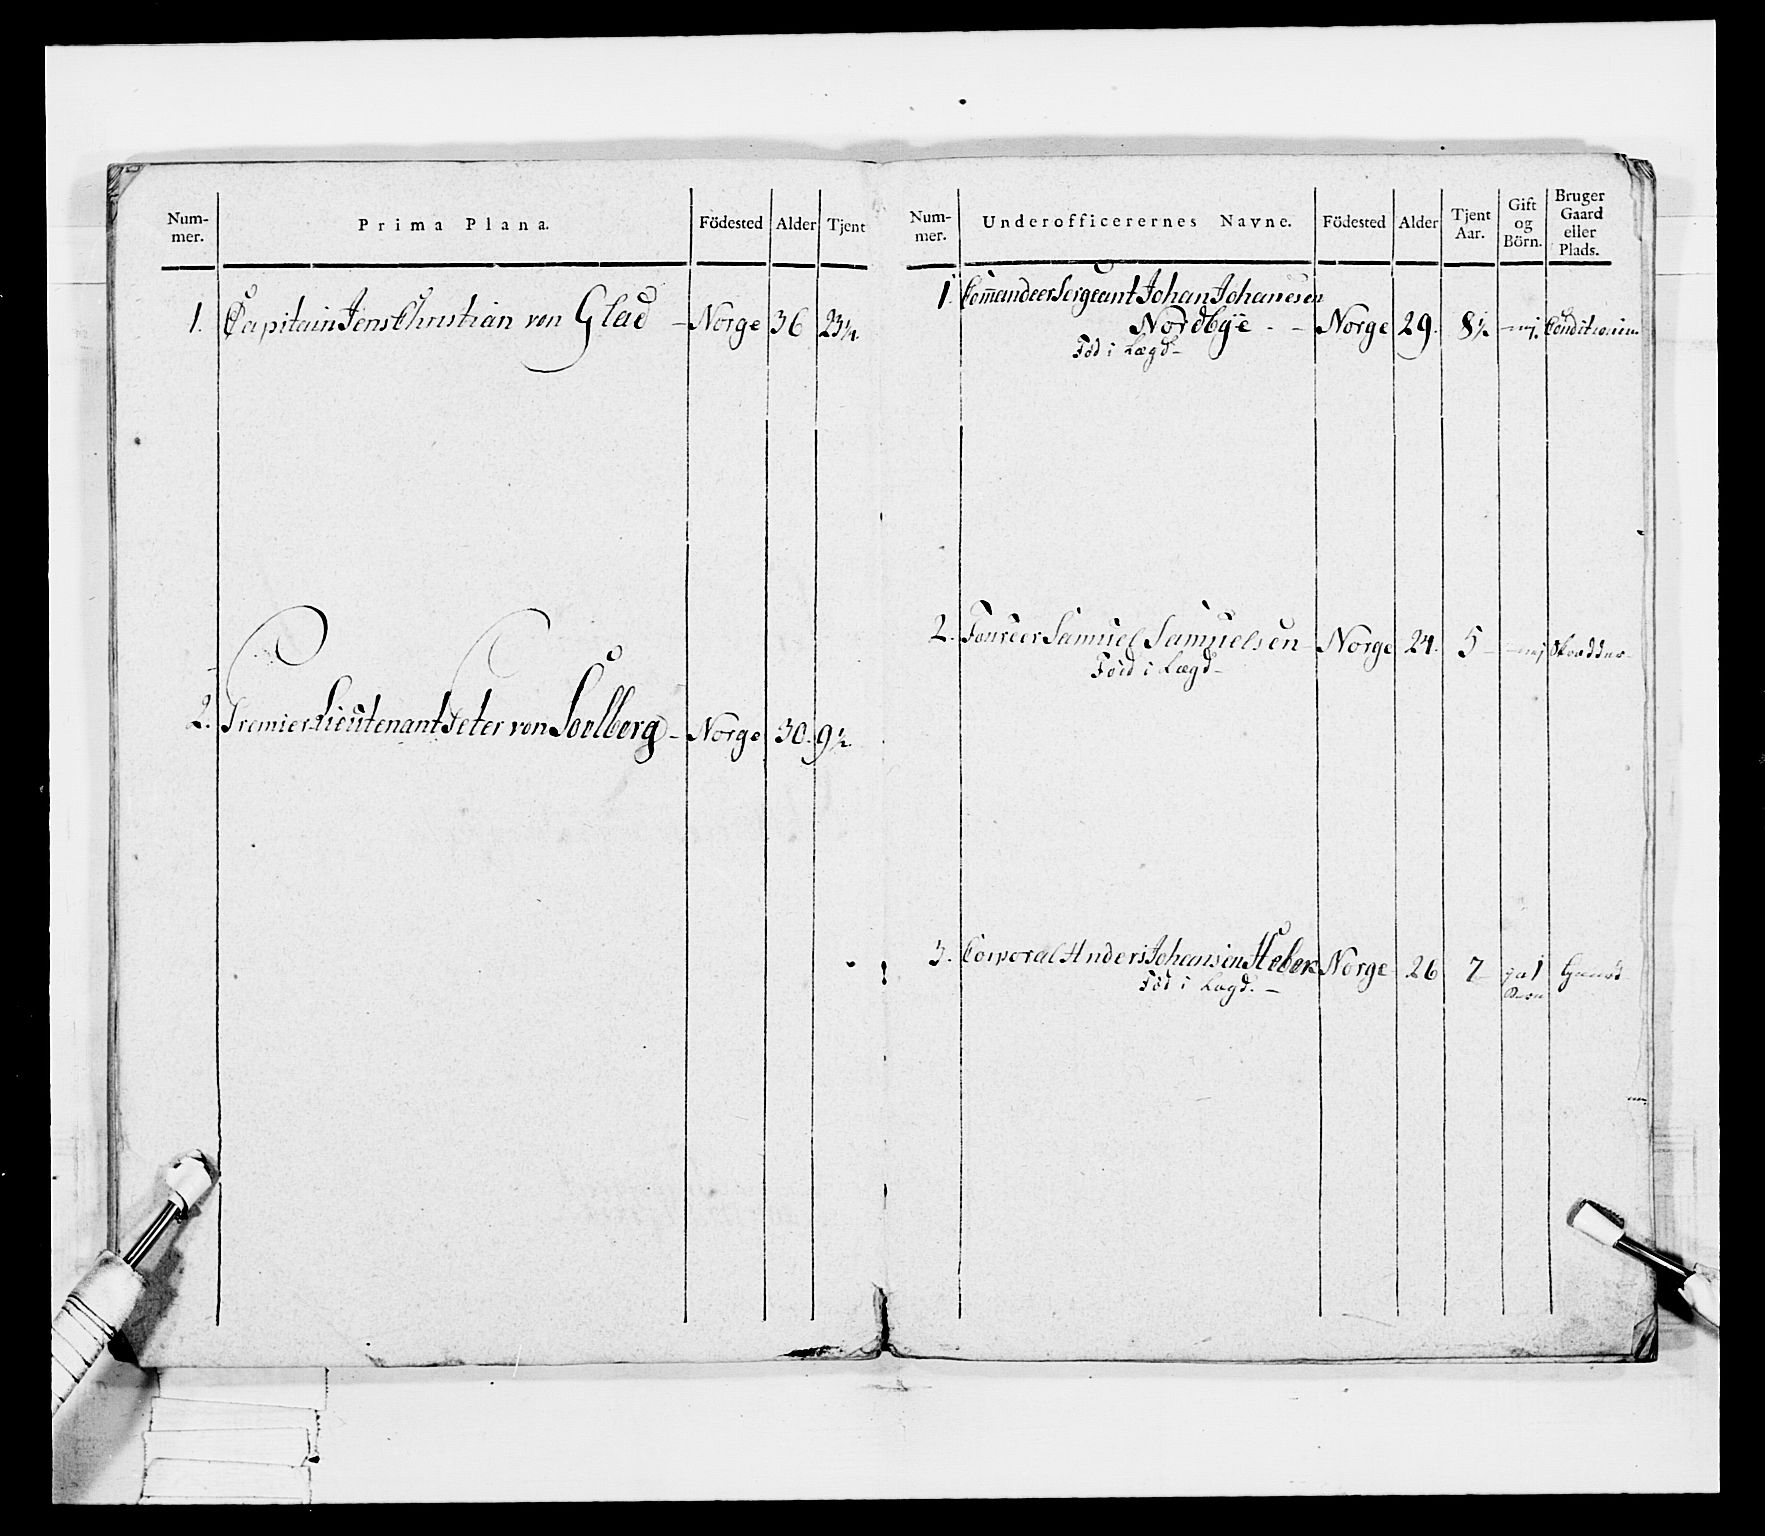 Num-
mer.
Prima Plana.
Födested
Alder
Tjent
1. Capitain Jens Christian von Glad - Norge 36 23 1/4.
2. Premier-Lieutenant Peter von Soelberg - Norge 30. 9 1/2
Num-
mer.
Underofficerernes Navne.
Födested
Alder
Tjent
Aar.
Gift
og
Börn.
Bruger
Gaard
eller
Plads.
1. Com̅andeer Sergeant Johan Johanesen
Nordbÿe - - Norge 29. 8 1/2 - nej.
Föd i Lægd -
2. Foureer Samuel Samuelsen - Norge 24. 5 - nej Skrædder -
Föd i Lægd -
3. Corporal Anders Johansen Norge 26 7 - ja 1
Föd i Lægd. -
Barn